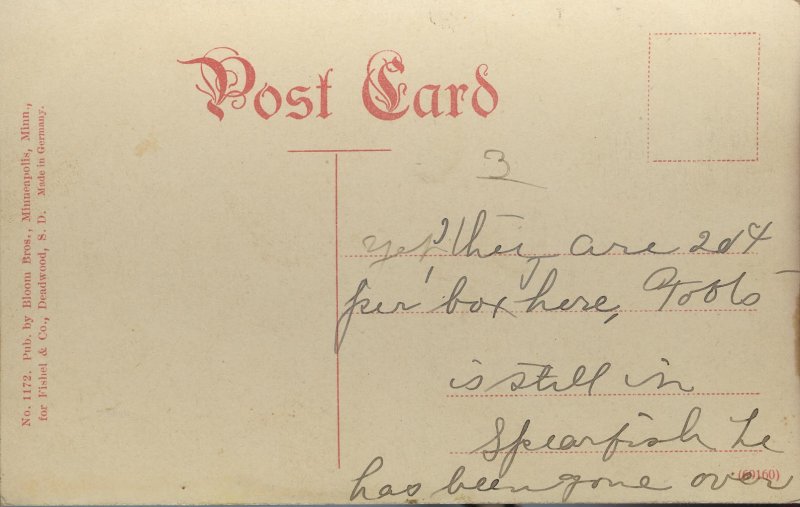 Post Card
No. 1172. Pub. by Bloom Bros., Minneapolis, Minn.,
for Fishel & Co., Deadwood, S. D. Made in Germany.
3
yet, they are
per box here, Toots
is still in
Spearfish he
(60160)
has been gone over